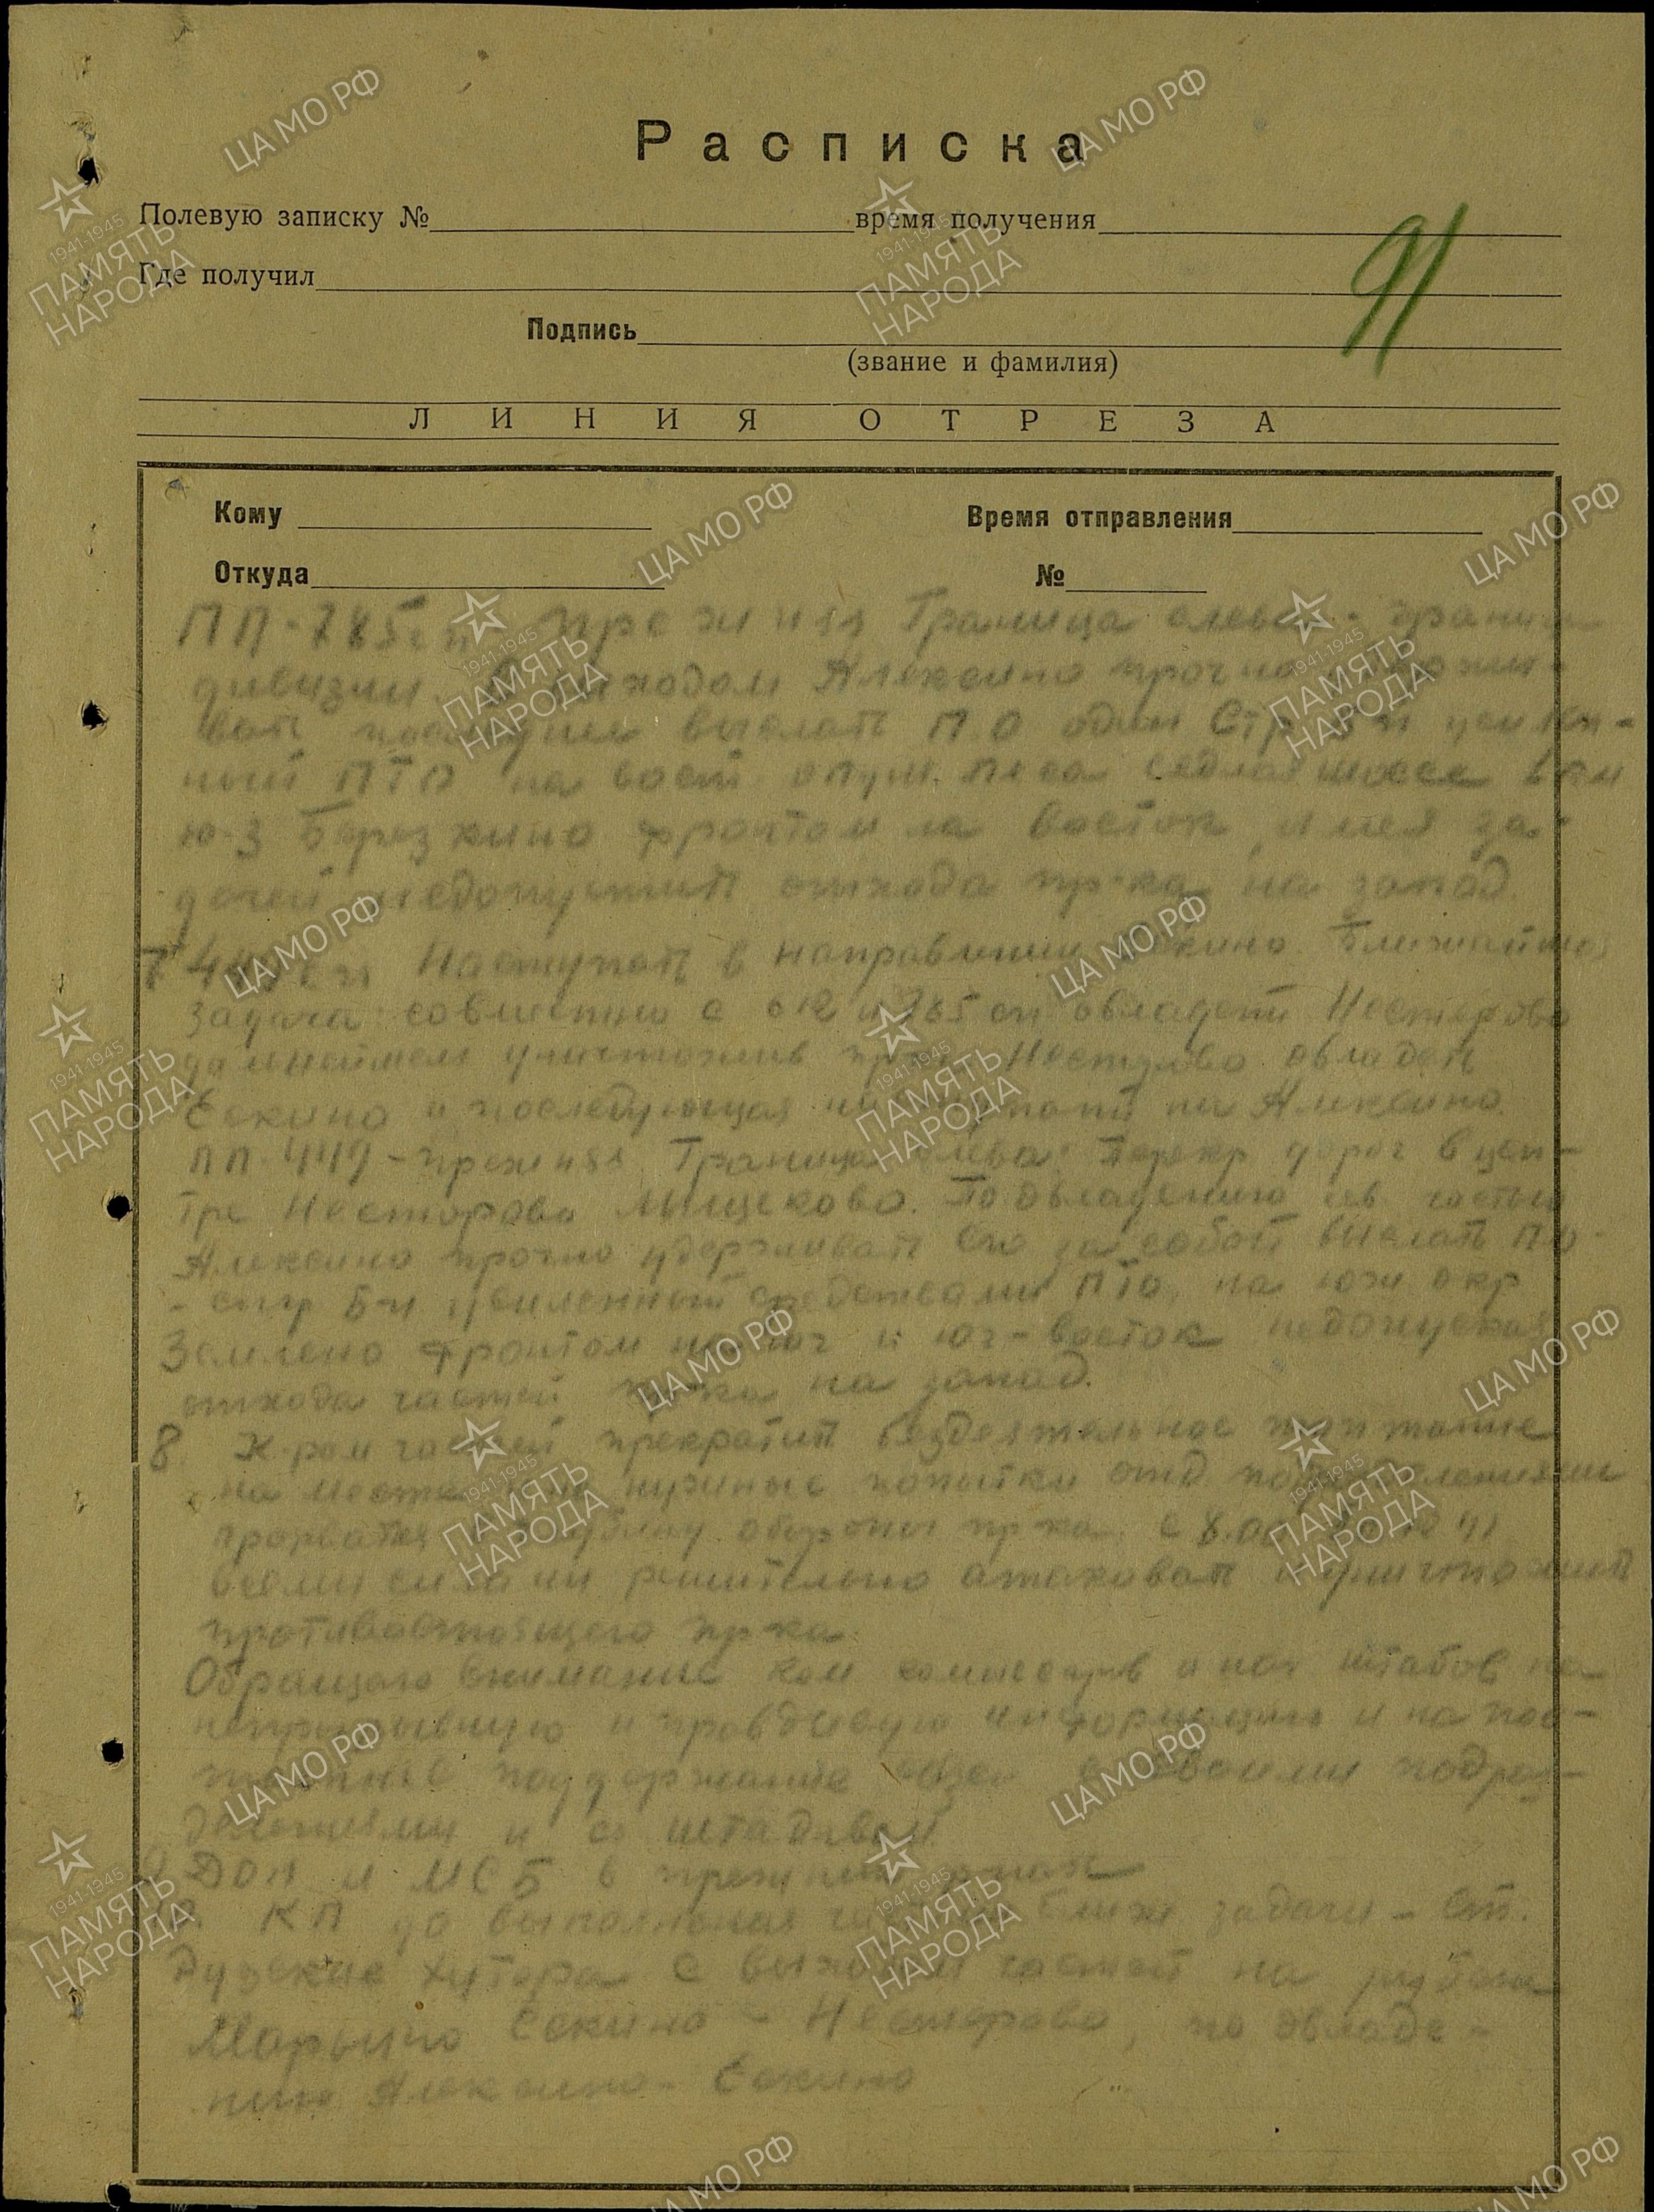 Расписка
Полевую записку № время получения
Где получил
91
Подпись
(звание и фамилия)
ЛИНИЯ ОТРЕЗА
Кому Время отправления
Откуда №
ПП-785 сп - прежняя Граница слева - граница
дивизии. С выходом Алексино прочно
выслать П.О один Стр
ный ПТО на вост. опуш. леса седлая шоссе
ю-з Березкино фронтом на восток, имея за-
дачей недопустить отхода пр-ка на запад.
7 449 сп Наступать в направлении Ескино. Ближайшая
задача совместно с и 785 сп овладеть Нестерово
дальнейшем уничтожив пр-ка Нестерово овладеть
Ескино и последующая наступать на Алексино.
ПП-449 - прежняя. Граница слева: Перекр дорог в цен-
тре Нестерово Мищеково. По овладению сев. частью
Алексино прочно удерживать его за собой выслать ПО
- стр б-н усиленный средствами ПТО, на южн окр
Землено фронтом на юг и юг-восток недопуская
отхода частей пр-ка на запад.
8. К-рам частей прекратить бездеятельное топтание
на месте нужные попытки отд. подразделениями
прорваться в глубину обороны пр-ка, с 8.00
всеми силами решительно атаковать и уничтожить
противостоящего пр-ка.
Обращаю внимание ком комиссаров и нач штабов на
непрерывную и правдивую информацию и на пос-
тоянное поддержание связи с своими подраз-
делениями и со штадивом.
9 ДОП и МСБ в прежних
10. КП до выполнения частями ближ. задачи - Ст.
Рузские Хутора с выходом частей на рубеж
Марьино Ескино - Нестерово, по овладе-
нию Алексино - Ескино
ЦАМО РФ
1941-1945
ПАМЯТЬ
НАРОДА